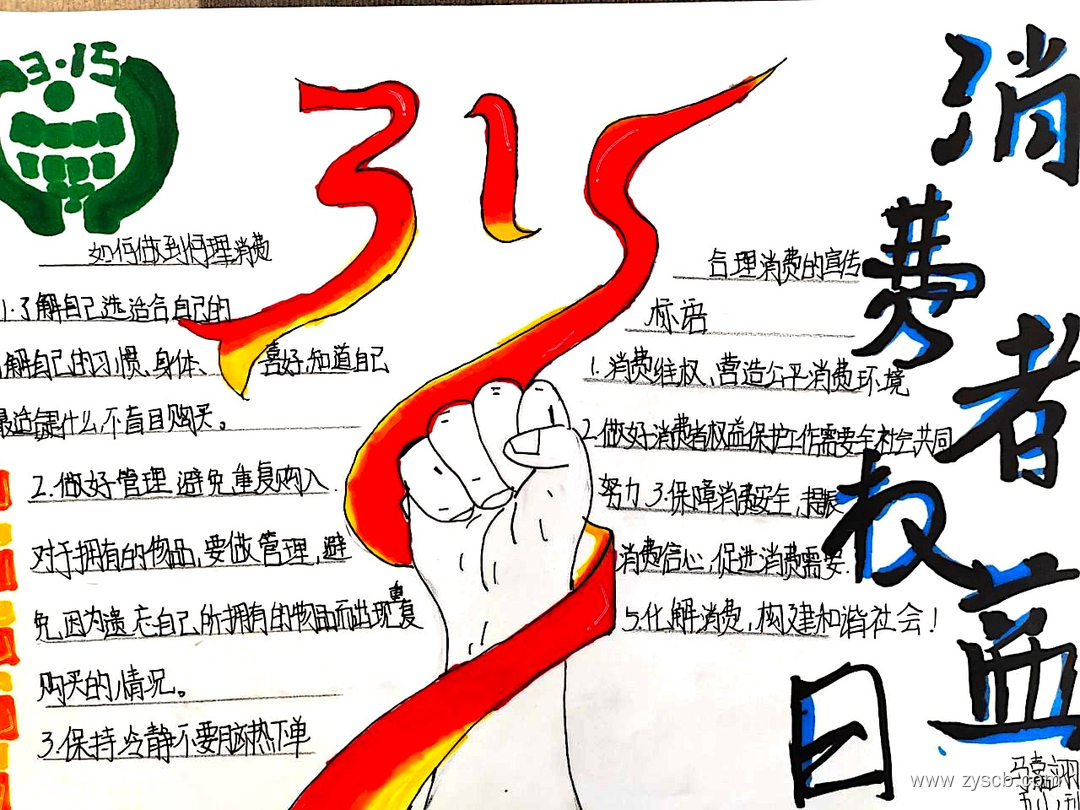 3·15
315
消费者权益日
如何做到何理消费
1.了解自己选适合自己的
解自己的习惯、身体、喜好,知道自己
最适合是什么,不盲目购买。
2.做好管理 避免重复购入.
对于拥有的物品,要做管理,避
免,因为遗忘自己所拥有的物品而出现重复
购买的,情况。
3.保持冷静不要脑热下单
合理消费的宣传
标语
1.消费维权、营造公平消费环境
2.做好消费者权益保护工作需要全社会共同
努力.3.保障消费安全,提振
消费信心,促进消费需要.
5.化解消费,构建和谐社会!
www.zyscb.com